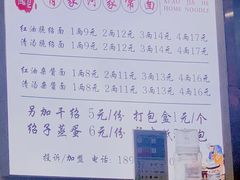 肖家河家常面
XIAO JIA HE
HOME NOODLE
红油脆绍面 1两9元 2两12元 3两14元 4两17元
清汤脆绍面 1两9元 2两12元 3两14元 4两17元
红油杂酱面 1两8元 2两11元 3两13元 4两16元
清汤杂酱面 1两8元 2两11元 3两13元 4两16元
另加干绍 5元/份 打包盒1元/个
绍子蒸蛋 6元/份
投诉/加盟 电话 189